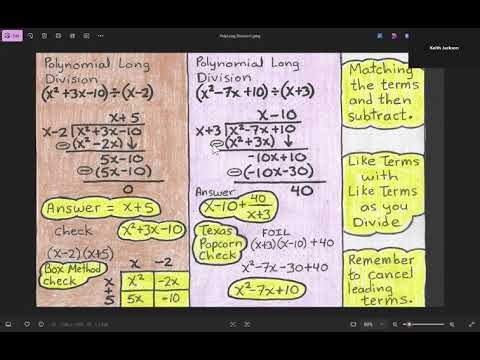 Keith Jackson
Polynomial Long
Division
(x²+3x-10)÷(x-2)
x+5
x-2 x²+3x-10
(x²-2x)↓
5x-10
(5x-10)
0
Answer = x+5
Check x²+3x-10
(x-2)(x+5)
Box Method
check
x -2
x x² -2x
+
5 5x -10
Polynomial Long
Division
(x²-7x+10)÷(x+3)
x-10
x+3 x²-7x+10
(x²+3x)↓
-10x+10
(-10x-30)
40
Answer
x-10+40/x+3
Texas
Popcorn
Check
FOIL
(x+3)(x-10)+40
x²-7x-30+40
x²-7x+10
Matching
the terms
and then
subtract.
Like Terms
with
Like Terms
as you
Divide
Remember
to cancel
leading
terms.